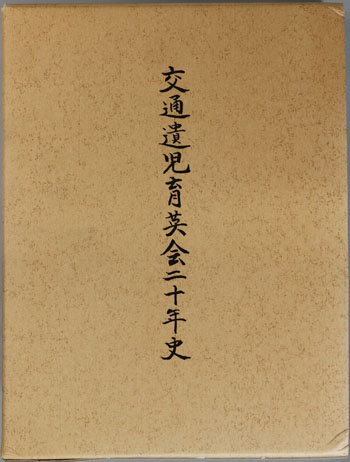 交通遺児育英会二十年史